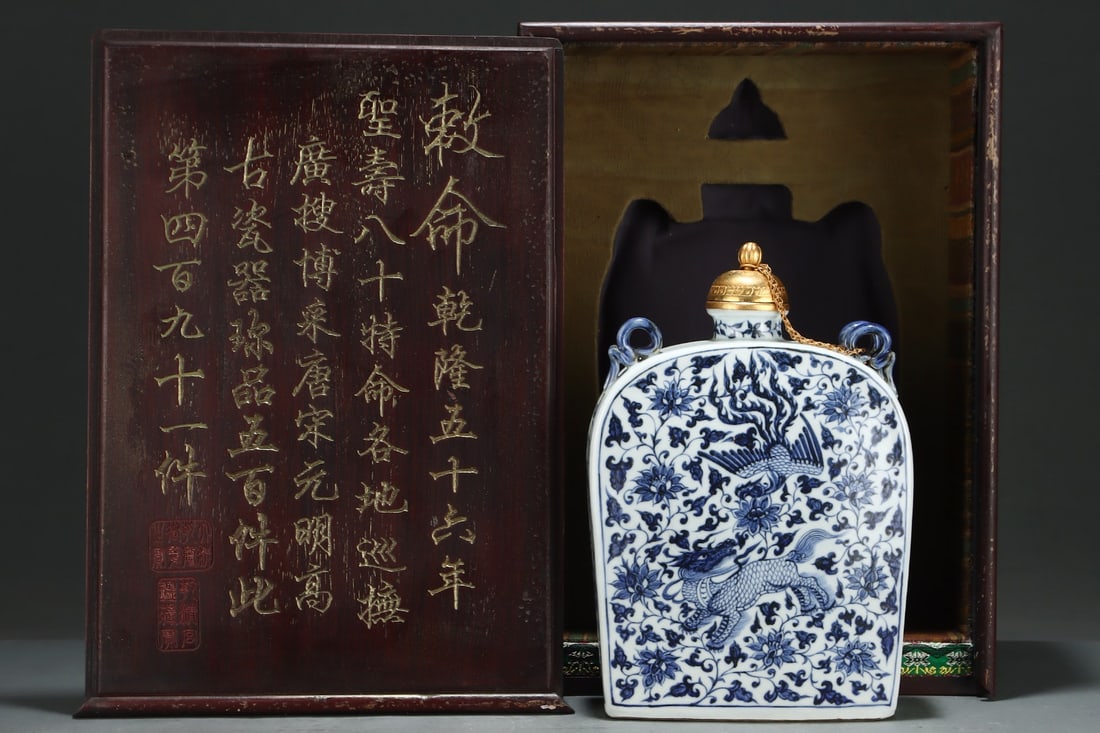 敕命乾隆五十六年
聖壽八十特命各地巡撫
廣搜博采唐宋元明高
古瓷器珍品五百件此
第四百九十一件